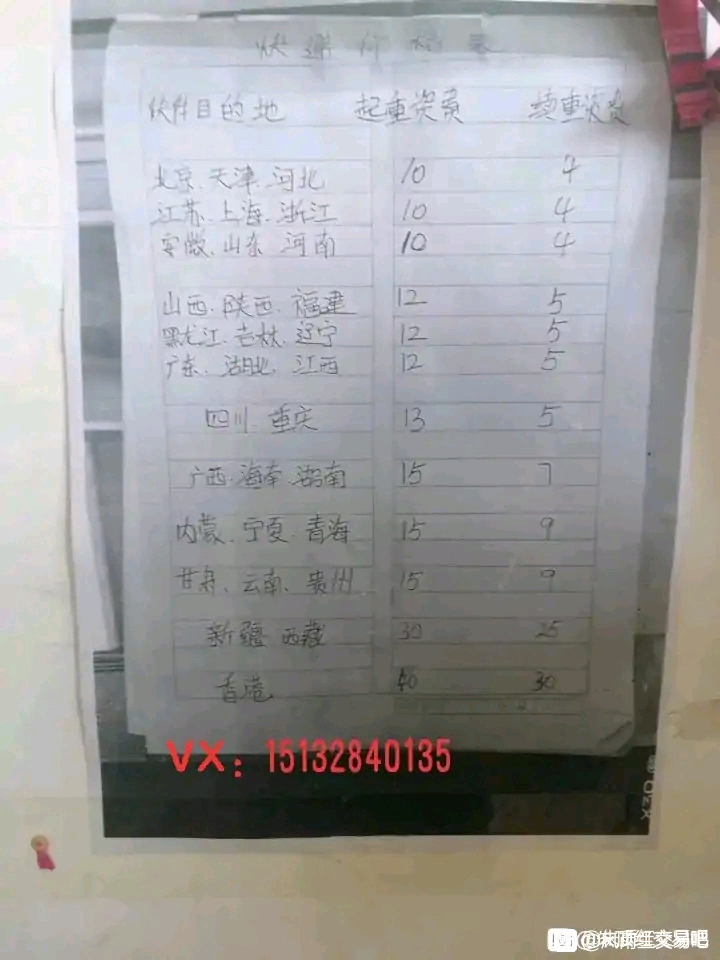 快递价格表
快件目的地 起重资费 续重资费
北京、天津、河北 10 4
江苏、上海、浙江 10 4
安徽、山东 河南 10 4
山西、陕西、福建 12 5
黑龙江、吉林、辽宁 12 5
广东、湖北、江西 12 5
四川 重庆 13 5
广西、海南、湖南 15 7
内蒙、宁夏、青海 15 9
甘肃、云南、贵州 15 9
新疆 西藏 30 25
香港 40 30
VX：15132840135
交易吧